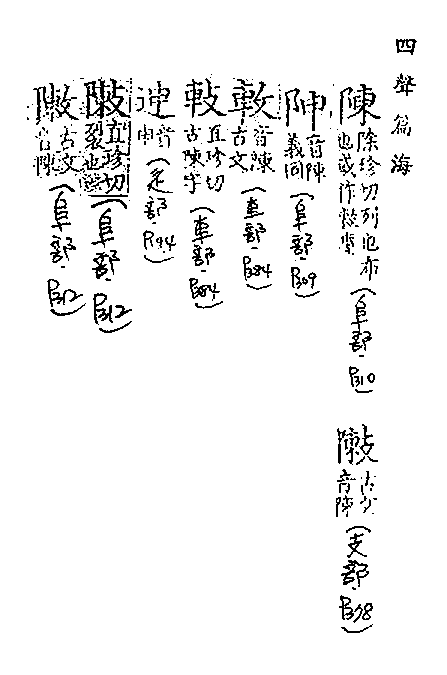 四聲篇海
陳 除珍切列也布也或作敶𨻰(阜部.P310)
敶 古文音陳(支部.P378)
𨸬 音陳義同(阜部.P309)
𢼒 音陳古文(車部.P284)
𢻹 直珍切古陳字(車部.P284)
迧 音申(辵部.P94)
敶 直珍切裂也(阜部.P312)
敶 古文音陳(阜部.P312)